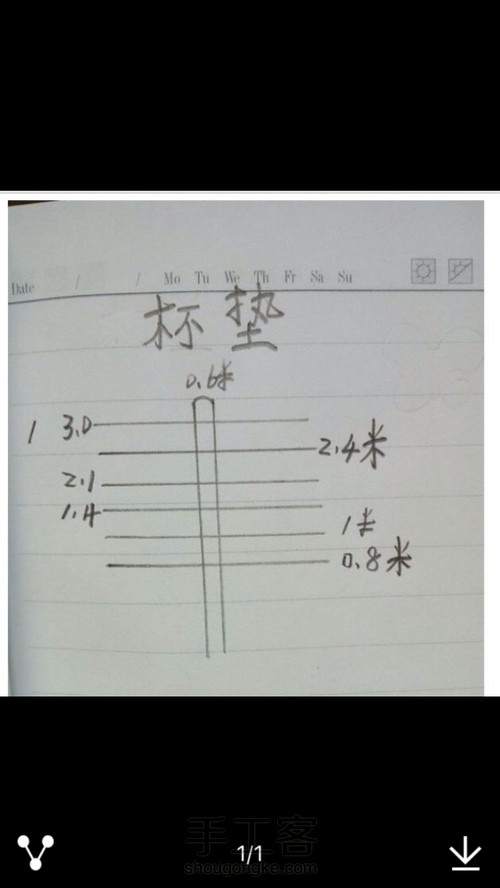 Date / / Mo Tu We Th Fr Sa Su
杯垫
0.6米
1 3.0
2.4米
2.1
1.4
1米
0.8米
手工客
1/1
shougongke.com